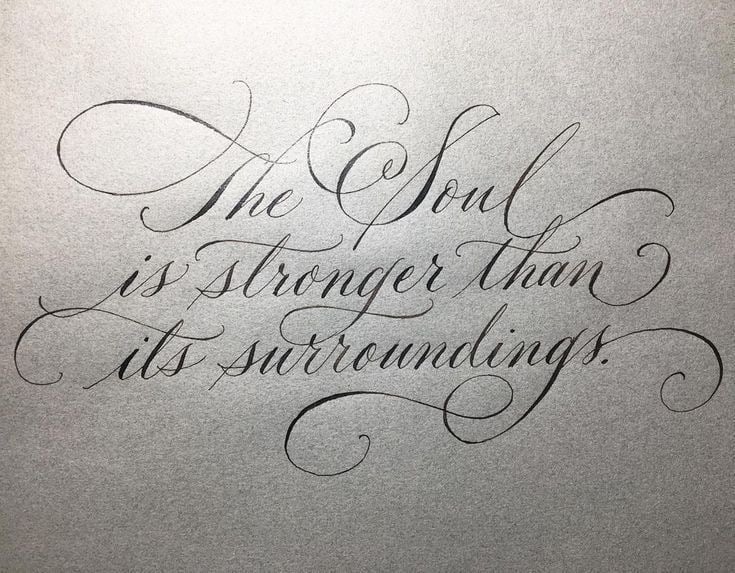 The Soul
is stronger than
its surroundings.